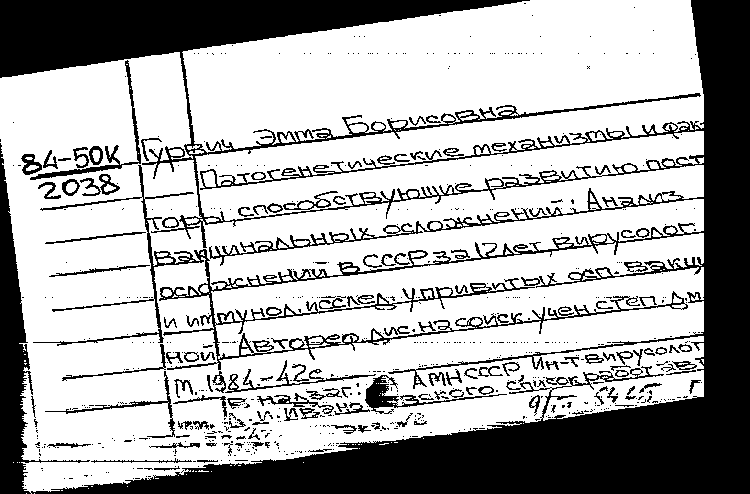 84-50К
2038
Гурвич, Эмма Борисовна
Патогенетические механизмы и фак-
торы, способствующие развитию пост
вакцинальных осложнений: Анализ
осложнений в СССР за 12 лет, вирусолог.
и иммунол. исслед. у привитых осп. вакци
ной. Автореф. дис. на соиск. учен. степ. д.м
М., 1984.-42с.
В надзаг.: АМН СССР Ин-т вирусолог
список работ авт